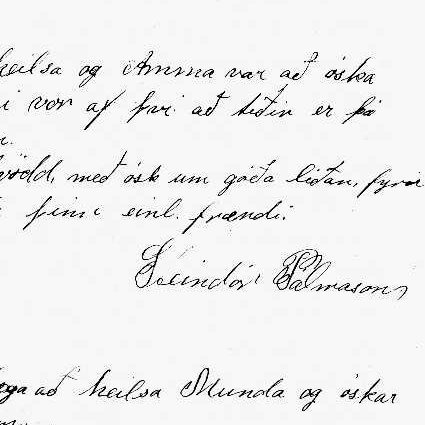 heilsa og Amma var að óska
i vor af því að tíðin er þá
kvödd, með ósk um góða líðan, fyrir
þinn einl. frændi.
Steindór Pálmason
að heilsa Munda og óskar